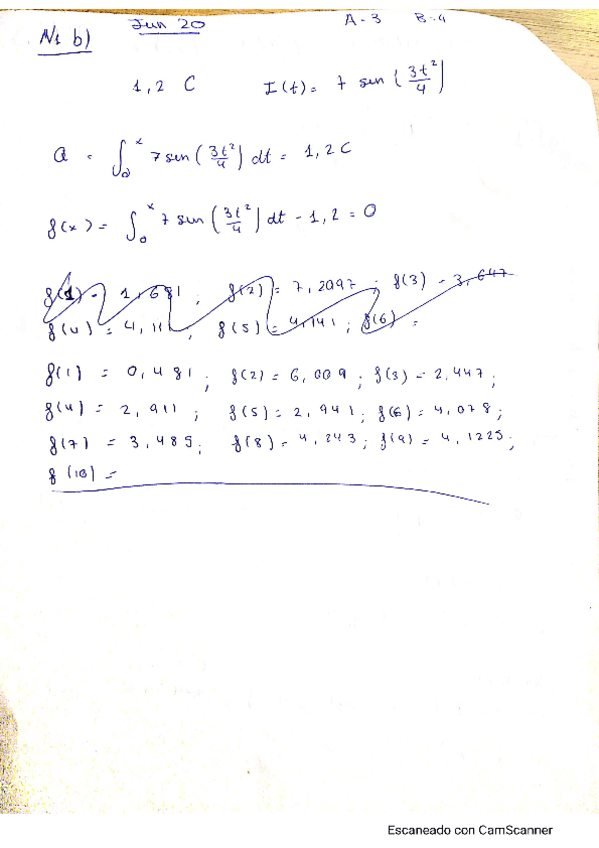 Jun 20 A-3 B-4
N1 b)
1,2 C I(t)= 7 sen (3t²/4)
Q = ∫₀ˣ 7 sen (3t²/4) dt = 1,2 C
f(x) = ∫₀ˣ 7 sen (3t²/4) dt - 1,2 = 0
f(1) = 1,681 ; f(2) = 7,2097 ; f(3) = 3,647
f(4) = 4,111 ; f(5) = 4,141 ; f(6) =
f(1) = 0,481 ; f(2) = 6,009 ; f(3) = 2,447 ;
f(4) = 2,911 ; f(5) = 2,941 ; f(6) = 4,078 ;
f(7) = 3,485 ; f(8) = 4,243 ; f(9) = 4,1225 ;
f(10) =
Escaneado con CamScanner